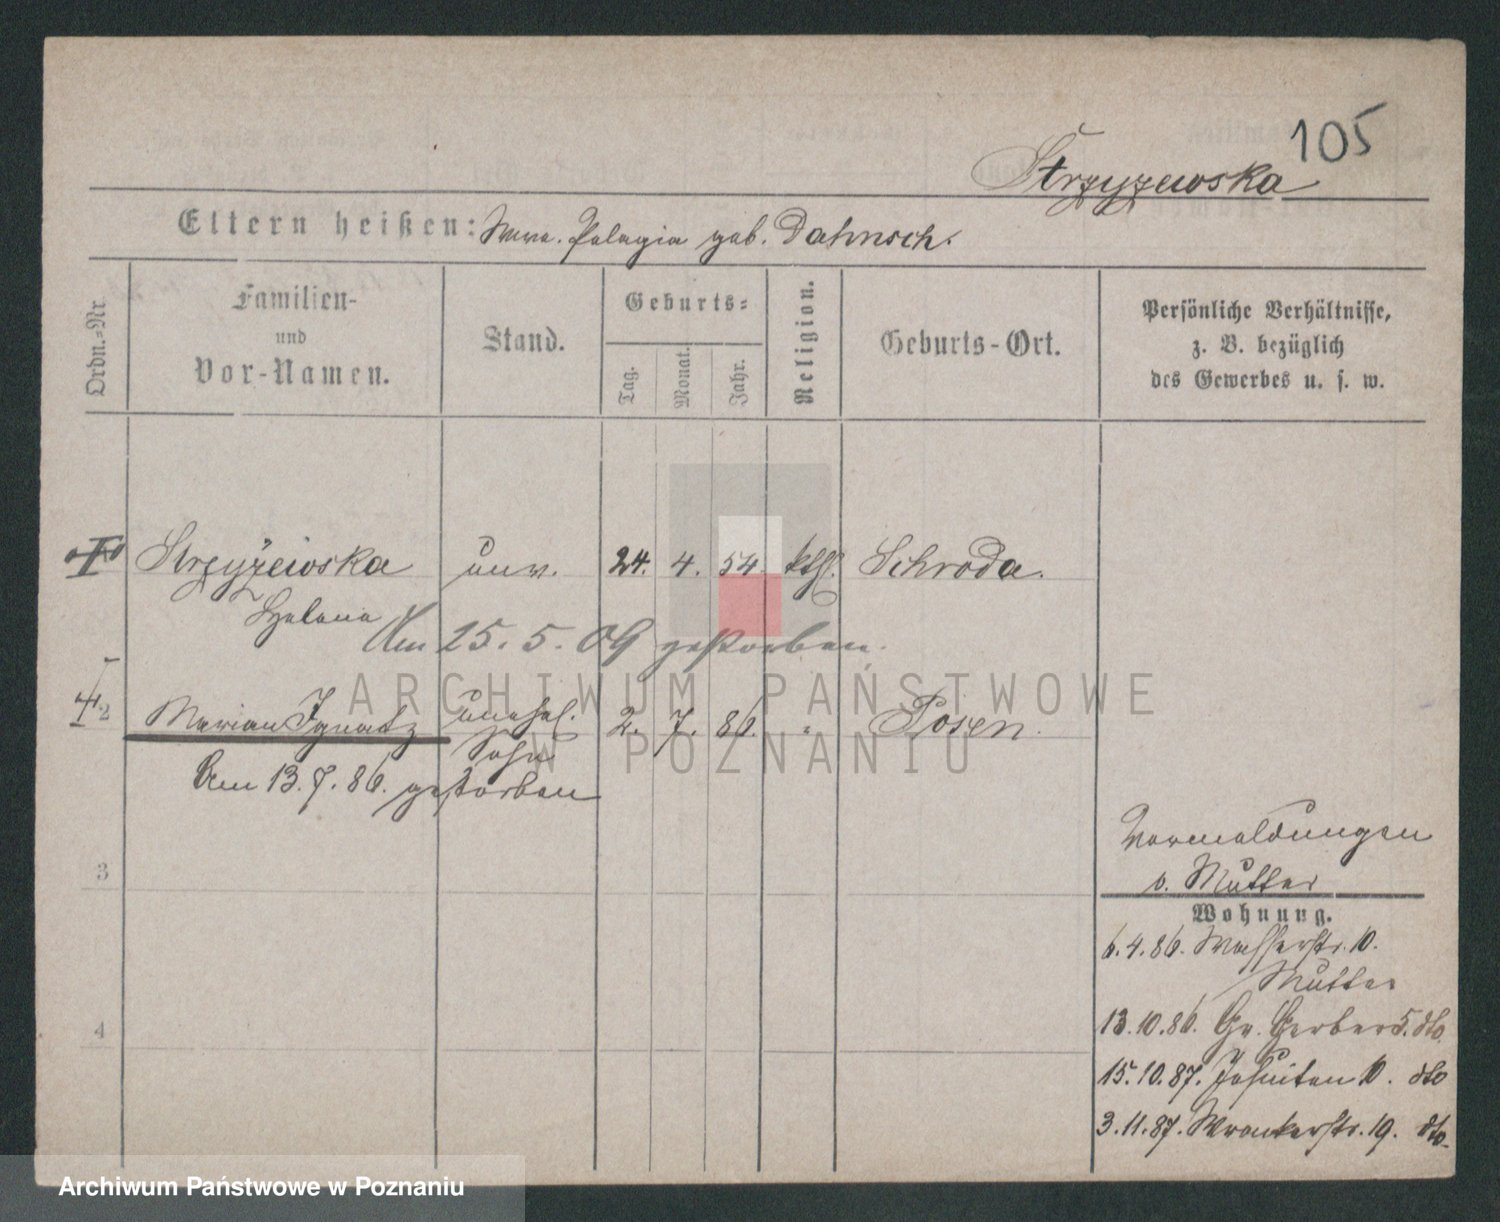 105
Strzyzewska
Eltern heißen: Wwe. Pelagia geb. Dahnsch.
Ordn.-Nr.
Familien-
und
Vor-Namen.
Stand.
Geburts=
Tag.
Monat.
Jahr.
Religion.
Geburts-Ort.
Persönliche Verhältnisse,
z. B. bezüglich
des Gewerbes u. s. w.
Strzyżewska unv. 24. 4. 54. kth. Schroda.
Helena
Am 15. 5. 09 gestorben.
2 Marian Ignatz unehel. 2. 7. 86. " Posen.
Sohn
Am 13. 7. 86. gestorben
3
4
Vormeldungen
v. Mutter
Wohnung.
6.4.86. Wasserstr. 10.
Mutter
13.10.86. Gr. Gerber 5. dto
15.10.87. Jesuiten 10. dto
3.11.87. Wronkerstr. 19. dto.
ARCHIWUM PAŃSTWOWE
W POZNANIU
Archiwum Państwowe w Poznaniu